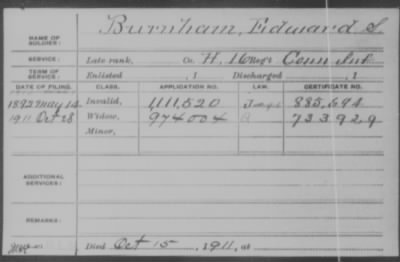 NAME OF SOLDIER: Burnham, Edward S.
SERVICE: Late rank, Co. H. 16 Reg't Conn Inf.
TERM OF SERVICE: Enlisted , 1 Discharged , 1
DATE OF FILING. CLASS. APPLICATION NO. LAW. CERTIFICATE NO.
1892 May 14 Invalid, 1,111,520 885,694
1911 Oct 28 Widow, 974004 733929
Minor,
ADDITIONAL SERVICES:
REMARKS:
Died Oct 15, 1911, at